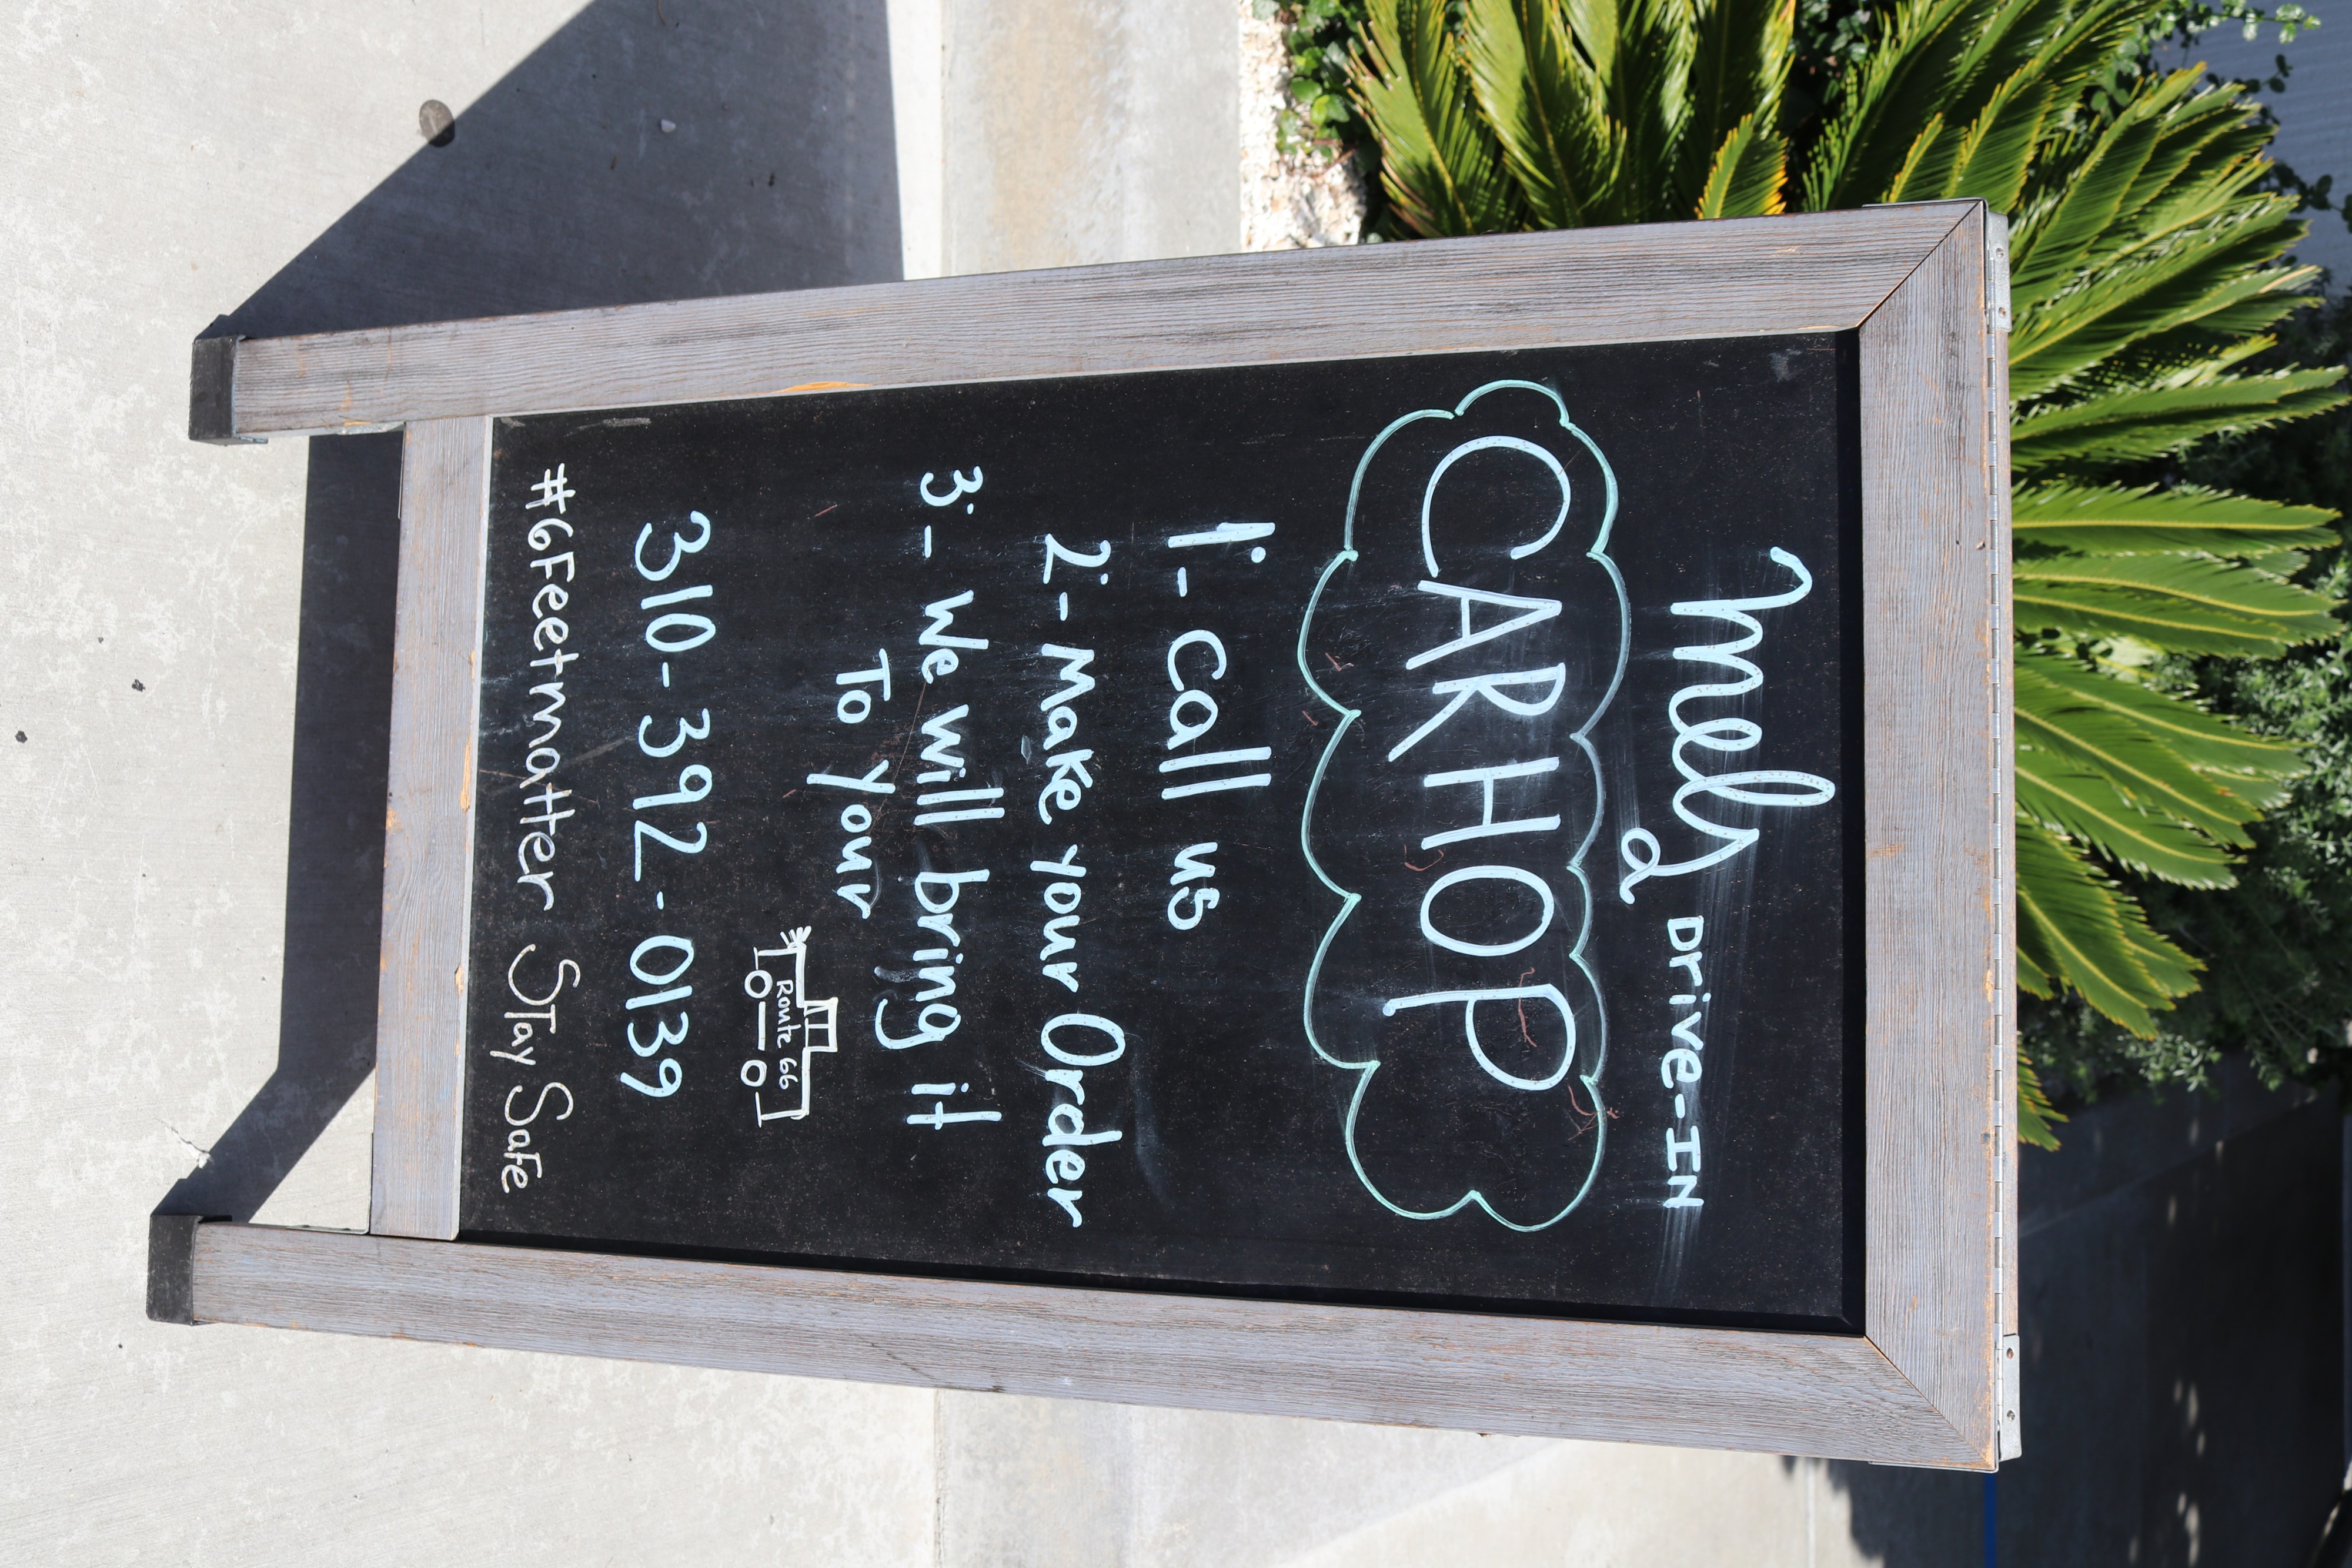 Mels Drive-IN
a
CARHOP
1- Call us
2- Make your Order
3- We will bring it
To your
Route 66
310-392-0139
#6Feetmatter Stay Safe